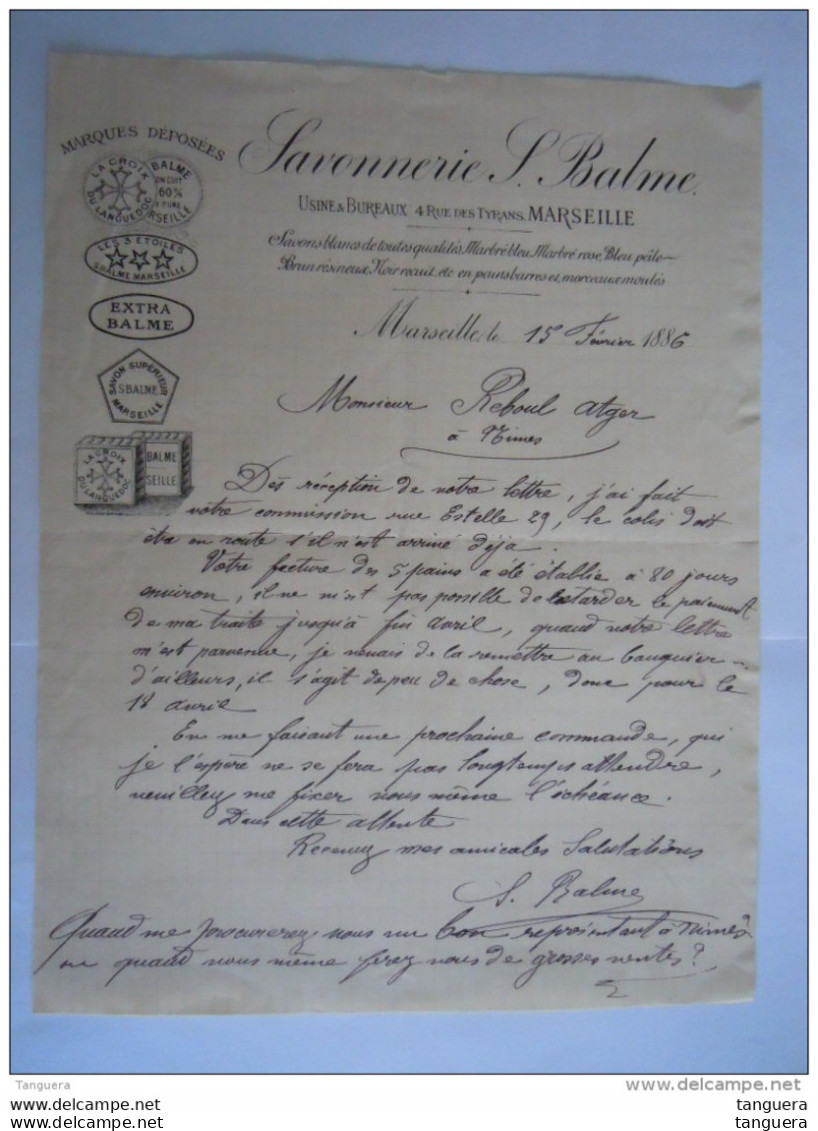 MARQUES DÉPOSÉES
LA CROIX
DU LANGUEDOC
BALME
60%
MARSEILLE
LES 3 ÉTOILES
S. BALME MARSEILLE
EXTRA
BALME
SAVON SUPÉRIEUR
S BALME
MARSEILLE
LA CROIX
DU LANGUEDOC
BALME
SEILLE
Savonnerie S. Balme.
USINE & BUREAUX 4 RUE DES TYRANS. MARSEILLE
Savons blancs de toutes qualités, Marbré bleu, Marbré rose, Bleu pâle
Brun résineux, Noir recuit, etc en pains barres et morceaux moulés
Marseille, le 15 Février 1886
Monsieur Reboul Atger
à Nimes
Dès réception de votre lettre, j'ai fait
votre commission rue Estelle 29, le colis doit
être en route s'il n'est arrivé déjà.
Votre facture des 5 pains a été établie à 80 jours
environ, il ne m'est pas possible de retarder le paiement
de ma traite jusqu'à fin avril, quand votre lettre
m'est parvenue, je venais de la remettre au banquier
d'ailleurs, il s'agit de peu de chose, donc pour le
18 avril
En me faisant une prochaine commande, qui
je l'espère ne se fera pas longtemps attendre,
veuillez me fixer vous même l'échéance.
Dans cette attente
Recevez mes amicales Salutations
S. Balme
Quand me procurerez vous un bon représentant à Nimes
ou quand vous même ferez vous de grosses ventes?
Tanguera
www.delcampe.net
tanguera
tanguera
tanguera
tanguera